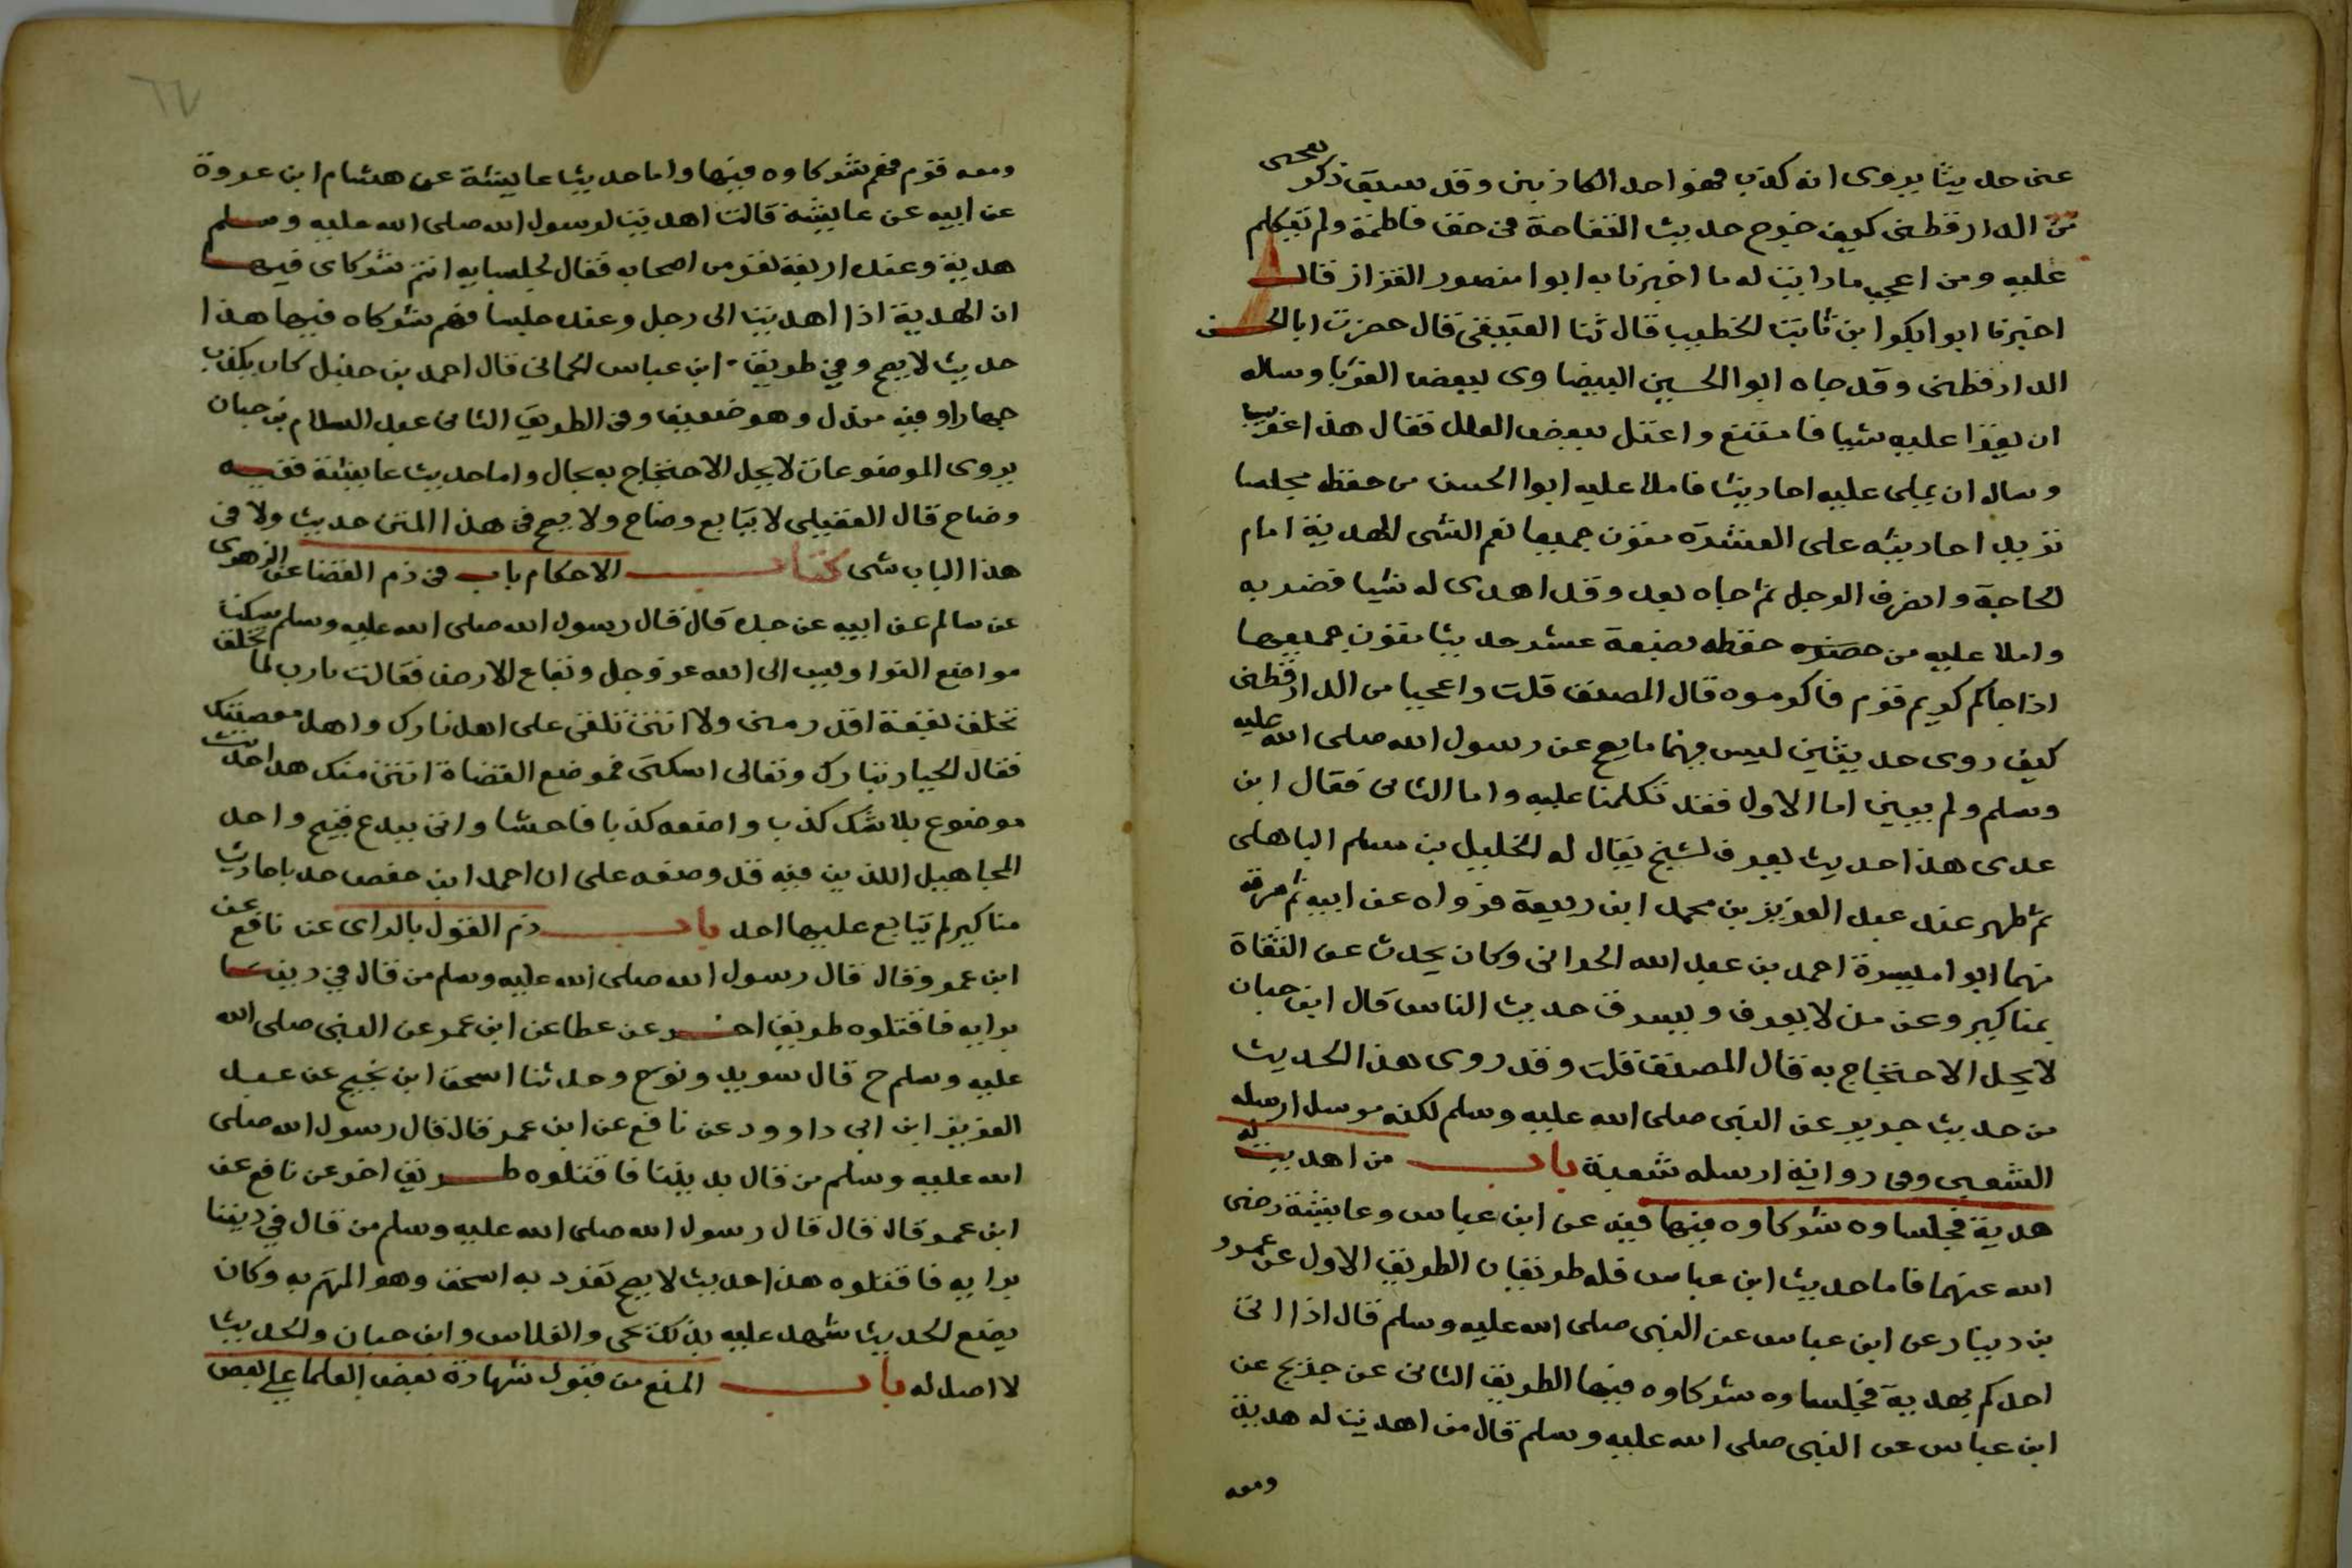 عنى حديثا يروى انه كذب فهو احد الكاذبين وقد سبق ذكر تعجبى
من الدارقطنى كيف خرج حديث التفاحة فى حق فاطمة ولم يتكلم
عليه ومن اعجب ما رايت له ما اخبرنا به ابوا منصور القزاز قال
اخبرنا ابوا بكر ابن ثابت الخطيب قال ثنا العتيقى قال حضرت ابا الحسن
الدارقطنى وقد جاه ابوا الحسين البيضاوى ببعض الغربا وساله
ان يقرا عليه شيا فامتنع واعتل ببعض العلل فقال هذا غريب
وساله ان يملى عليه احاديث فاملا عليه ابوا الحسن من حفظه مجلسا
تزيد احاديثه على العشرة متون جميعها نعم الشى الهدية امام
الحاجة وانصرف الرجل ثم جاه بعد وقد اهدى له شيا فقربه
واملا عليه من حفظه بضعة عشر حديثا متون جميعها
اذا جاكم كريم قوم فاكرموه قال المصنف قلت واعجبا من الدارقطنى
كيف روى حديثين ليس فيهما ما يصح عن رسول الله صلى الله عليه
وسلم ولم يبين اما الاول فقد تكلمنا عليه واما الثانى فقال ابن
عدى هذا حديث يعرف لشيخ يقال له الخليل بن مسلم الباهلى
ثم ظهر عند عبد العزيز بن محمد ابن ربيعة فرواه عن ابيه ثم سرقه
منهما ابوا ميسرة احمد بن عبد الله الحرانى وكان يحدث عن الثقاة
بمناكير وعن من لا يعرف ويسرق حديث الناس قال ابن حبان
لا يحل الاحتجاج به قال المصنف قلت وقد روى هذا الحديث
من حديث جرير عن النبى صلى الله عليه وسلم لكنه مرسل ارسله
الشعبى وفى رواية ارسله شعبة باب من اهديت له
هدية فجلساوه شركاوه فيها فيه عن ابن عباس وعايشة رضى
الله عنهما فاما حديث ابن عباس فله طريقان الطريق الاول عن عمرو
بن دينار عن ابن عباس عن النبى صلى الله عليه وسلم قال اذا اتى
احدكم بهدية فجلساوه شركاوه فيها الطريق الثانى عن جريج عن
ابن عباس عن النبى صلى الله عليه وسلم قال من اهديت له هدية
ومعه
٦٧
ومعه قوم فهم شركاوه فيها واما حديث عايشة عن هشام ابن عروة
عن ابيه عن عايشة قالت اهديت لرسول الله صلى الله عليه وسلم
هدية وعنده اربعة نفر من اصحابه فقال لجلسايه انتم شركاى فيها
ان الهدية اذا اهديت الى رجل وعنده جلسا فهم شركاه فيها هذا
حديث لا يصح وفى طريق ابن عباس الحمانى قال احمد بن حنبل كان يكذب
جهارا وفيه مندل وهو ضعيف وفى الطريق الثانى عبد السلام بن حبان
يروى الموضوعات لا يحل الاحتجاج به بحال واما حديث عايشة ففيه
وضاح قال العقيلى لا يتابع وضاح ولا يصح فى هذا المتن حديث ولا فى
هذا الباب شى كتاب الاحكام باب فى ذم القضا عن الزهرى
عن سالم عن ابيه عن جده قال قال رسول الله صلى الله عليه وسلم سكت
مواضع النواويس الى الله عز وجل وبقاع الارض فقالت يا رب لما تخلق
تخلق بقعة اقذر منى ولا انتن تلقى على اهل نارك واهل معصيتك
فقال الجبار تبارك وتعالى اسكتى فموضع القضاة انتن منك هذا حديث
موضوع بلا شك كذب واضعه كذبا فاحشا واتى ببدع قبيح واحد
المجاهيل الذين فيه قد وضعه على ان احمد ابن حفص حدث باحاديث
مناكير لم يتابع عليها احد باب ذم القول بالراى عن نافع عن
ابن عمر وقال قال رسول الله صلى الله عليه وسلم من قال فى ديننا
برايه فاقتلوه طريق اخر عن عطا عن ابن عمر عن النبى صلى الله
عليه وسلم ح قال سويد ونوح وحدثنا اسحق ابن نجيح عن عبد
العزيز ابن ابى داوود عن نافع عن ابن عمر قال قال رسول الله صلى
الله عليه وسلم من قال بديننا فاقتلوه طريق اخر عن نافع عن
ابن عمر قال قال قال رسول الله صلى الله عليه وسلم من قال فى ديننا
برايه فاقتلوه هذا حديث لا يصح تفرد به اسحق وهو المتهم به وكان
يضع الحديث شهد عليه بذلك يحى والفلاس وابن حبان والحديث
لا اصل له باب المنع من قبول شهادة بعض العلما على بعض